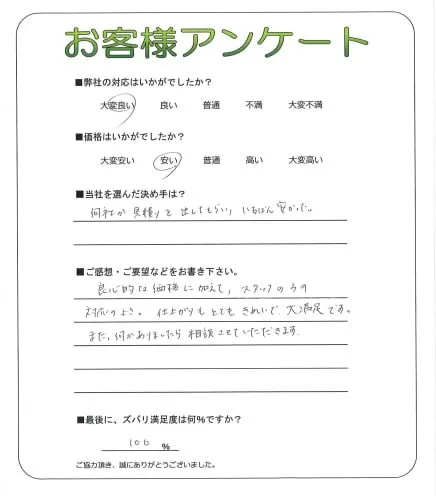 お客様アンケート
■弊社の対応はいかがでしたか？
大変良い 良い 普通 不満 大変不満
■価格はいかがでしたか？
大変安い 安い 普通 高い 大変高い
■当社を選んだ決め手は？
何社か見積りを出してもらい，いちばん安かった。
■ご感想・ご要望などをお書き下さい。
良心的な価格に加えて，スタッフの方の
対応のよさ。仕上がりもとてもきれいで大満足です。
また，何かありましたら相談させていただきます.
■最後に、ズバリ満足度は何％ですか？
100 ％
ご協力頂き、誠にありがとうございました。